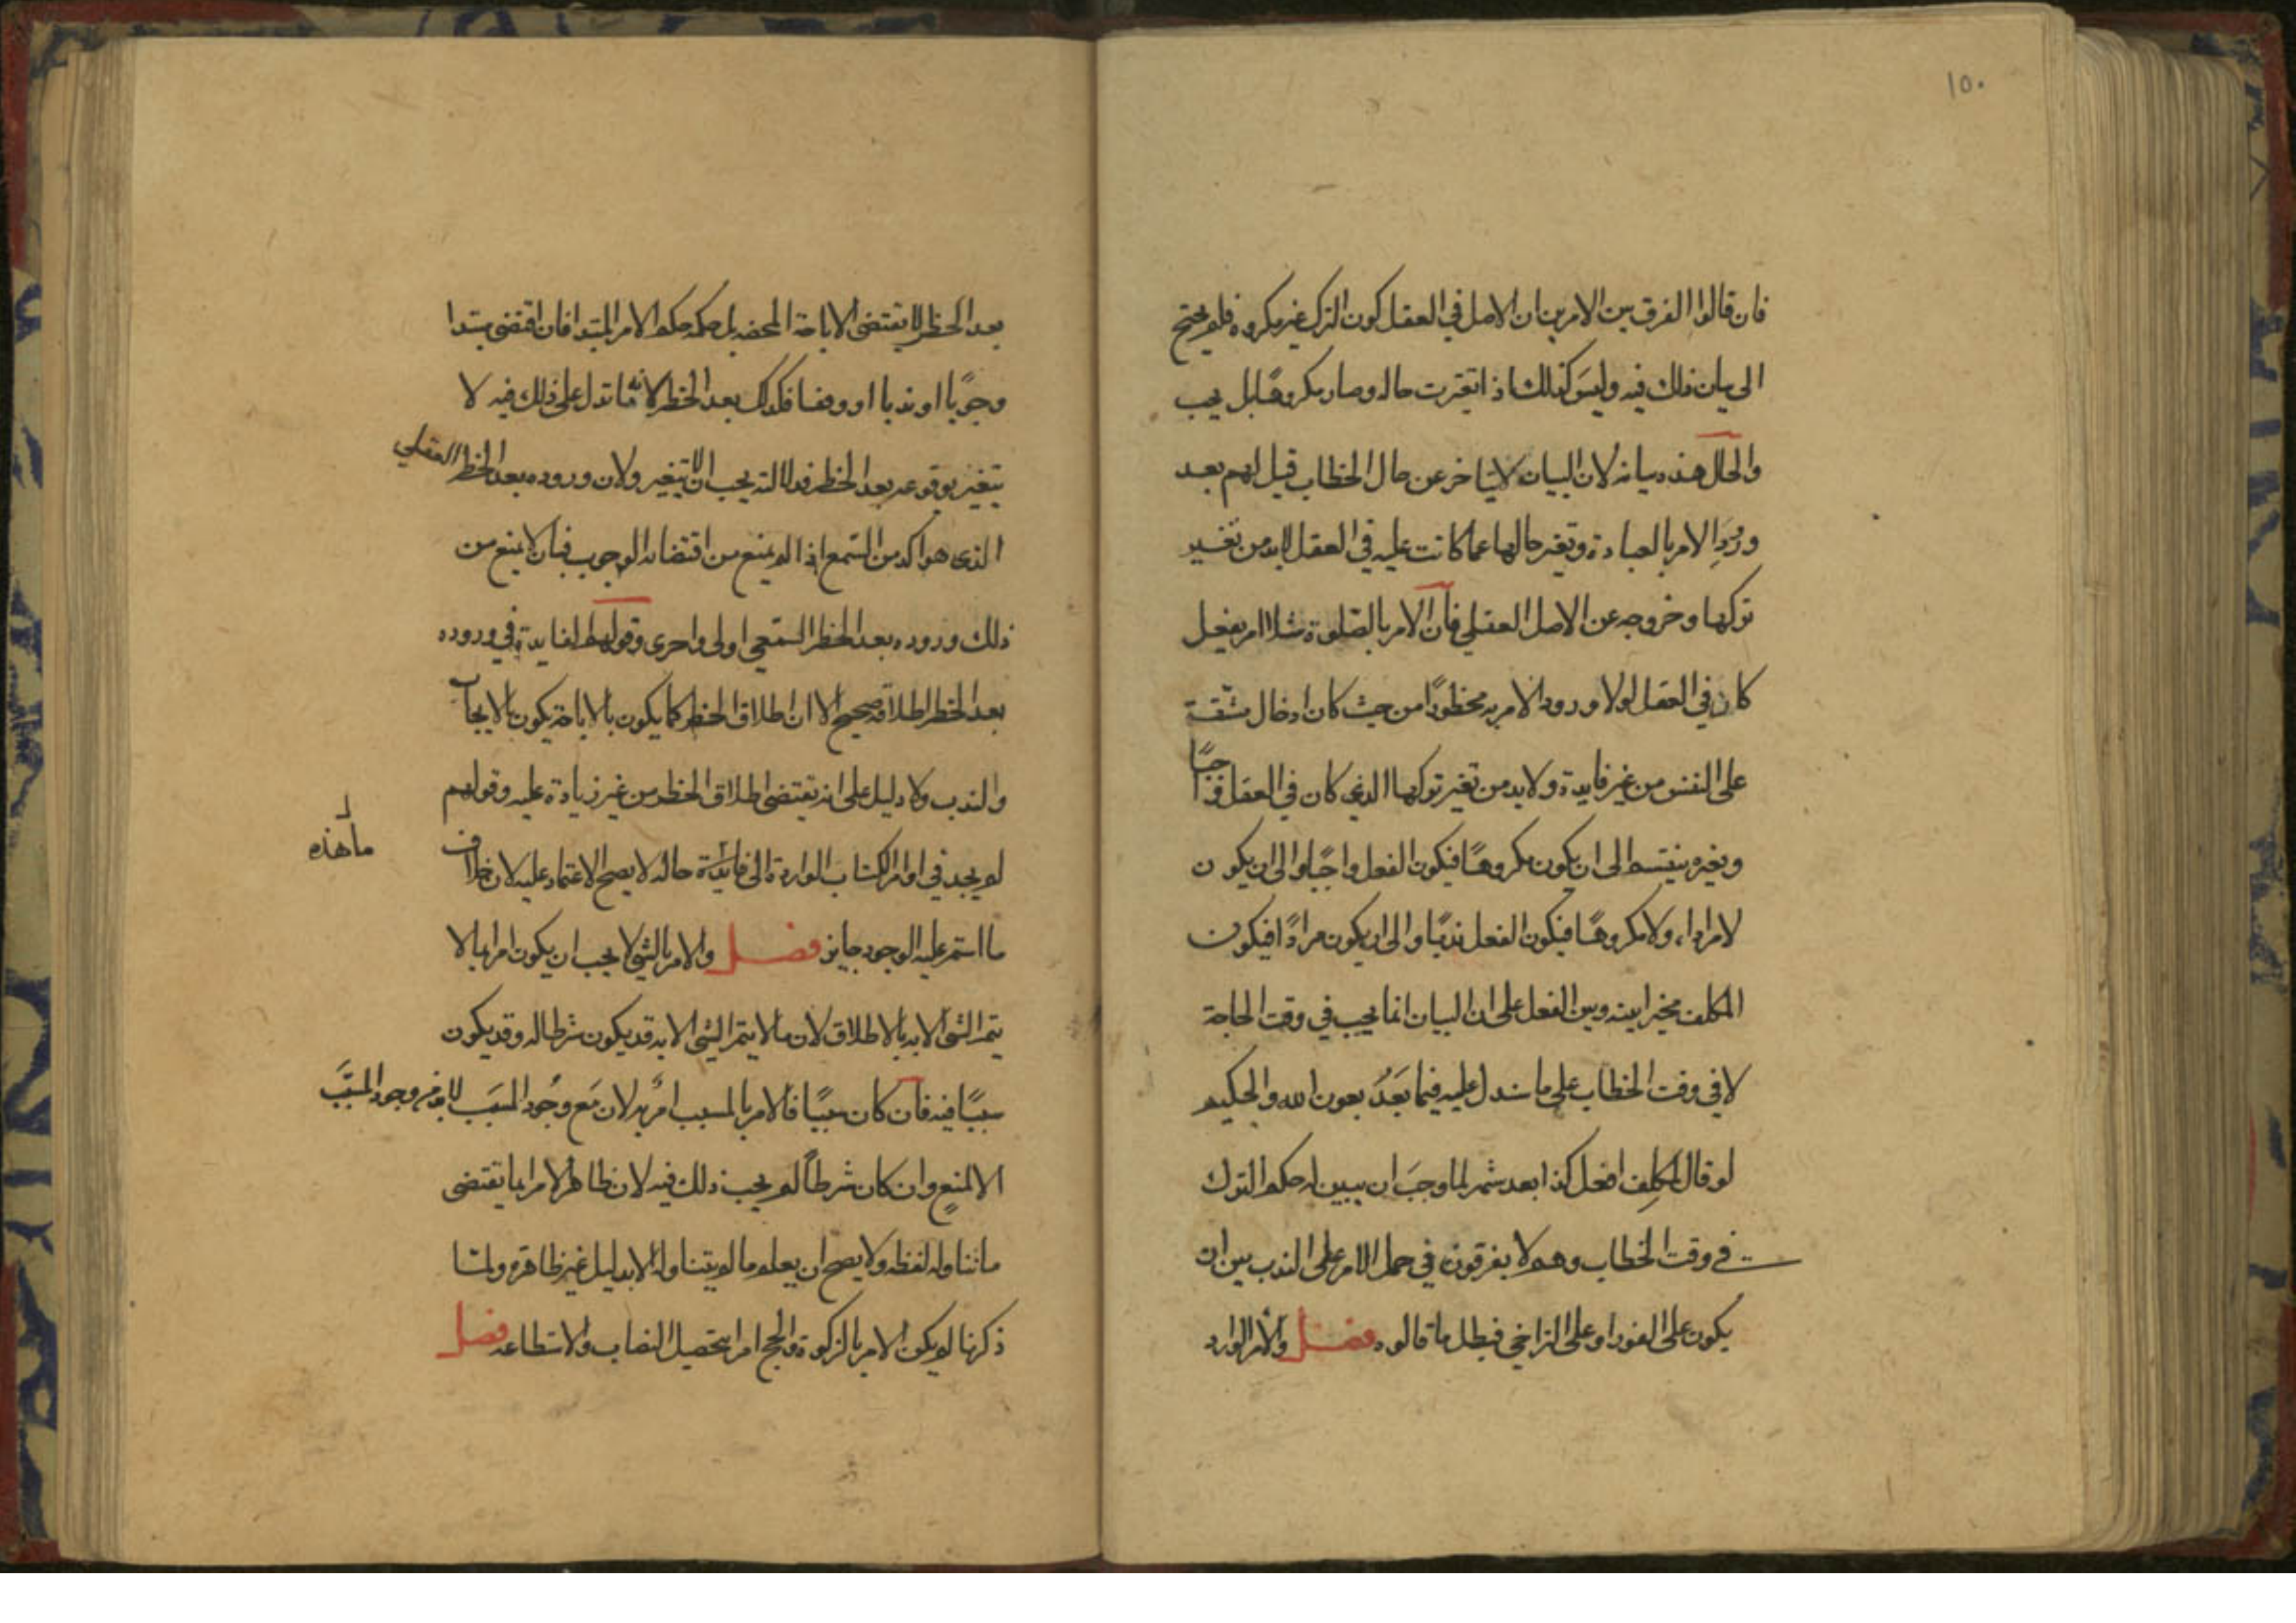 ١٥٠
فان قالوا الفرق بين الامرين ان الاصل في العقل كون الترك غير مكروه فلم يحتج
الى بيان ذلك فيه وليس كذلك اذا تغيرت حاله وصار مكروهًا بل يجب
والحال هذه بيانه لان البيان لا يتاخر عن حال الخطاب قيل لهم بعد
ورود الامر بالعبادة وتغير حالها عما كانت عليه في العقل لابد من تغيير
تركها وخروجه عن الاصل العقلي فان الامر بالصلوة مثلا امر بفعل
كان في العقل لولا ورود الامر به محظورًا من حيث كان ادخال مشقة
على النفس من غير فايدة ولابد من تغير تركها الذي كان في العقل واجبًا
وتغيره ينقسم الى ان يكون مكروهًا فيكون الفعل واجبًا والى ان يكون
لا مرادا، ولا مكروهًا فيكون الفعل ندبًا والى ان يكون مرادًا فيكون
المكلف مخيرا بينه وبين الفعل على ان البيان انما يجب في وقت الحاجة
لا في وقت الخطاب على ما سندل عليه فيما بَعَدُ بعون الله والحكيم
لو قال لمكلِف افعل كذا بعد شهر لما وجَبَ ان يبين له حكم الترك
في وقت الخطاب وهم لا يفرقون في حمل الامر على الندب بين ان
يكون على الفور او على التراخي فبطل ما قالوه فصل والامر الوارد
بعد الحظر لا يقتضى الاباحة المحضه بل حكمه حكم الامر المبتدا فان اقتضى مبتدا
وجوبًا او ندبا او وقفا فكذلك بعد الحظر لانه ما تدل على ذلك فيه لا
يتغير بوقوعه بعد الحظر فدلالته يجب الا تتغير ولان وروده بعد الحظر العقلي
الذى هو اكد من السّمع اذا لم يمنع من اقتضائه الوجوب فبان لا يمنع من
ذلك وروده بعد الحظر السّمعي اولى واحرى وقولهم الفايدة في وروده
بعد الحظر اطلاقه صحيح الا ان اطلاق الحظر كما يكون بالاباحة يكون بالايجاب
والندب ولا دليل على انه يقتضى اطلاق الحظر من غير زيادة عليه وقولهم
لم يجد في اوامر الكتاب الواردة الى فائدة حاله لا يصح الاعتماد عليه لان خلاف
ما هذه
ما استمر عليه الوجود جايز فصل والامر بالشي لا يجب ان يكون امرا بما لا
يتم الشى الا به بالاطلاق لان ما لا يتم الشى الا به قد يكون شرطا له وقد يكون
سببًا فيه فان كان سببًا فالامر بالمسبب امرٌ به لان مَع وجُود السبَب لابد من وجود المسبَّب
الا لمنعٍ وان كان شرطاً لم يجب ذلك فيه لان ظاهر الامر انما يقتضى
ما تناوله لفظه ولا يصح ان يعلم ما لم يتناوله الا بدليل غير ظاهره ولما
ذكرنا لم يكن الامر بالزكوة والحج امرا بتحصيل النصاب والاستطاعه فصل